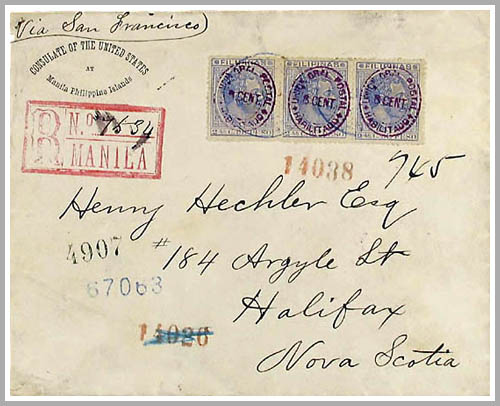 Via San Francisco
CONSULATE OF THE UNITED STATES
AT
Manila Philippine Islands
R No. 7534
MANILA
FILIPINAS FILIPINAS FILIPINAS
UNION GRAL POSTAL HABILITADO
8 CENT. 8 CENT. 8 CENT.
14038
745
Henry Hechler Esq
4907
#184 Argyle St
67063
Halifax
14026
Nova Scotia